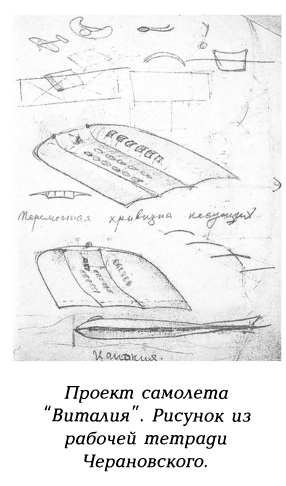 Переменная кривизна несущих
Проект самолета
"Виталия". Рисунок из
рабочей тетради
Черановского.